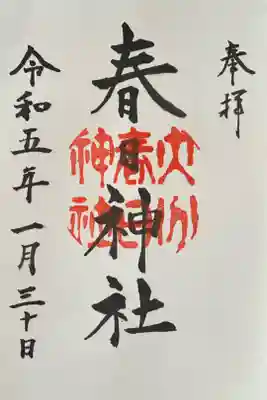 奉拝
春日神社
大分
春日
神社
令和五年一月三十日